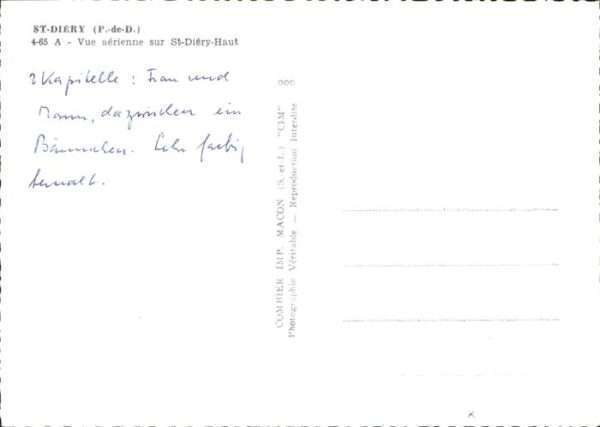 ST-DIÉRY (P.-de-D.)
4-65 A - Vue aérienne sur St-Diéry-Haut
2 Kapitelle : Frau und
Mann, dazwischen ein
Bäumchen. Sehr farbig
bemalt.
COMBIER IMP. MACON (S.-et-L.) "CIM"
Photographie Véritable — Reproduction Interdite